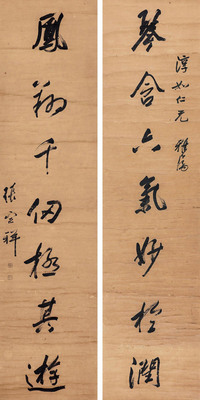 淳如仁兄 雅屬
琴含六氣妙於潤
鳳翔千仞極其遊
張宗祥